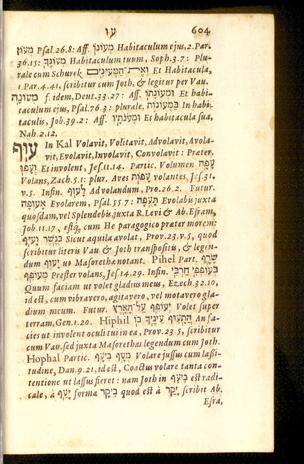 עו 604
מעון Psal.26.8: Aff. מעונו Habitaculum ejus, 2.Par.
36.15: מעונך Habitaculum tuum, Soph.3.7: Plu-
rale cum Schurek ואת־המעינים Et Habitacula,
1.Par.4.41, scribitur cum Joth, & legitur per Vau.
מעונה f. idem, Deut.33.27: Aff. ומעונתו Et habi-
taculum ejus, Psal.76.3: plurale, במעונות In habi-
taculis, Job.39.2: Aff. ומעונתיו Et habitacula sua,
Nah.2.12.
עוף In Kal Volavit, Volitavit, Advolavit, Avola-
vit, Evolavit, Involavit, Convolavit: Prater.
ועפו Et involent, Jes.11.14. Partic. Volumen עפה
Volans, Zach.5.1: plur. Aves עפות volantes, Jes.31.
v.5. Infin. לעוף Advolandum, Pro.26.2. Futur.
אעופה Evolarem, Psal.55.7: תעפה Evolabis juxta
quosdam, vel Splendebis juxta R.Levi & Ab.Esram,
Job.11.17, estq; cum He paragogico prater morem:
ועיף כנשר Sicut aquila avolat, Prov.23.v.5, quod
scribitur literis Vau & Joth transpositis, & legen-
dum יעוף ut Masoretha notant. Pihel Part. שרף
מעופף Prester volans, Jes.14.29. Infin. בעופפי חרבי
Quum faciam ut volet gladius meus, Ezech.32.10,
id est, cum vibravero, agitavero, vel motavero gla-
dium meum. Futur. יעופף על הארץ Volet super
terram, Gen.1.20. Hiphil התעוף עיניך בו An fa-
cies ut involent oculi tui in ea, Prov.23.5, scribitur
cum Vau, sed juxta Masorethas legendum cum Joth.
Hophal Partic. מעף ביעף Volare jussus cum lassi-
tudine, Dan.9.21, id est, Coactus volare tanta con-
tentione ut lassus fieret: nam Joth in ביעף est radi-
cale, à יעף forma יקר quod est à יקר scribit Ab.
Esra,